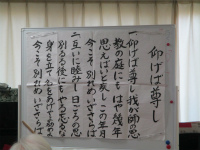 仰げば尊し
一 仰げば尊し我が師の恩
教の庭にもはや幾年
思えばいと疾しこの年月
今こそ別れめいざさらば
二 互いに睦みし日ごろの恩
別るる後にもやよ忘るな
身を立て名をあげやよ励めよ
今こそ別れめいざさらば